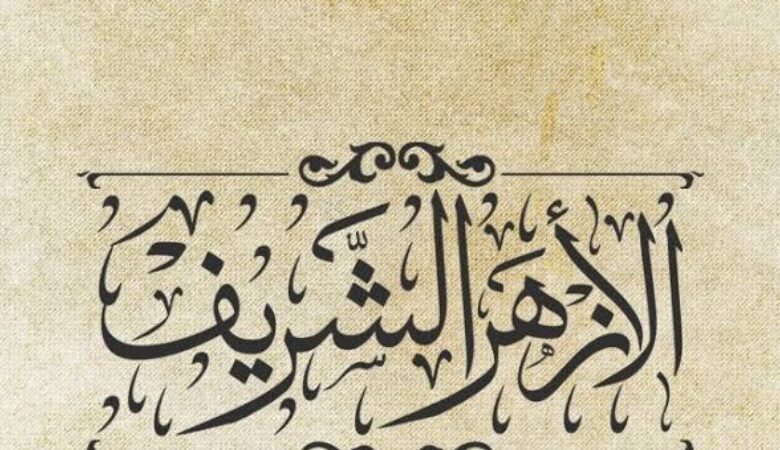 الأزهر الشريف